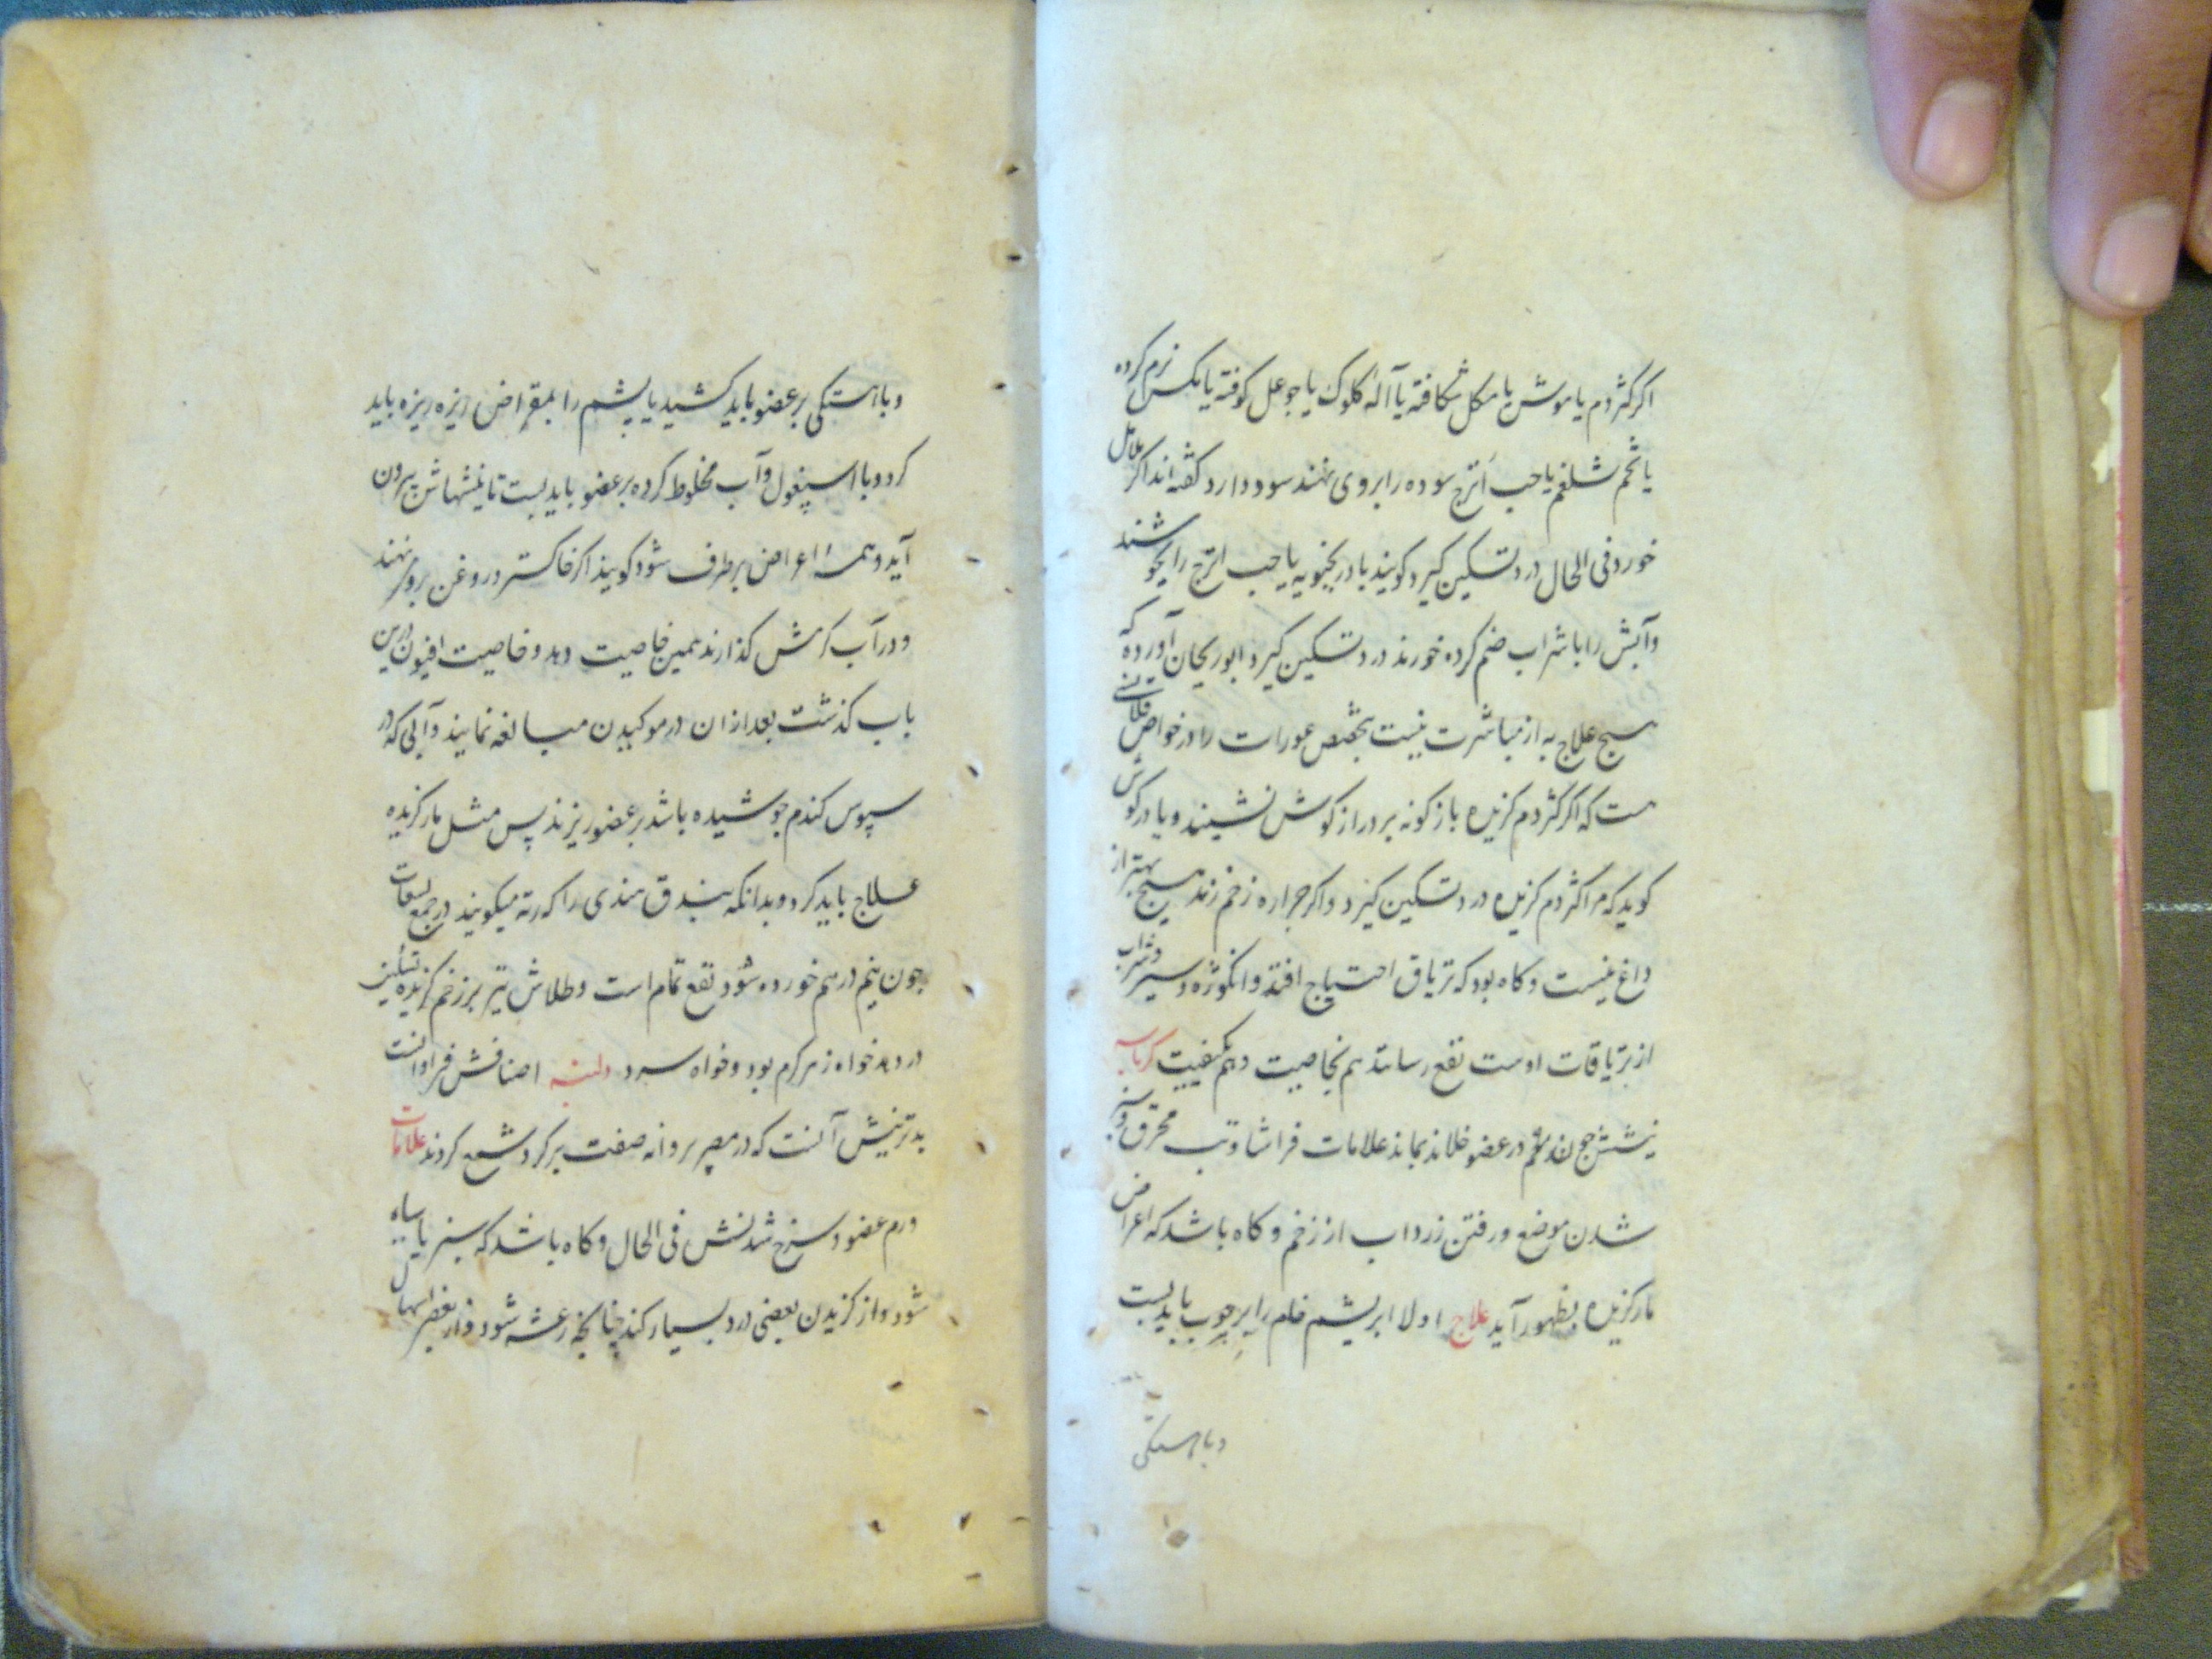 اکر کژدم یا موش یا مکل شکافته یا آلهٔ کلوک یا جوعل کوفته یا مکس نرم کرده
یا تخم شلغم یا حب اترج سوده را بروی نهند سود دارد کفته اند اکر عاقل
خورد فی الحال درد تسکین کیرد کویند بادرنجبویه یا حب اترج را بجوشند
و آبش را با شراب ضم کرده خورند درد تسکین کیرد ابوریحان آورده که
هیچ علاج به از مباشرت نیست بتخصیص عورات را در خواص
ست که اکر کژدم کزیده بازکونه بر درازکوش نشیند و یا در کوش
کوید که مرا کژدم کزیده درد تسکین کیرد و اکر جراره زخم زند هیچ بهتر از
داغ نیست و کاه بود که تریاق احتیاج افتد و انکوژه و سیر و شراب
از تریاقات اوست نفع رسانند هم بخاصیت و هم بکیفیت
نیشش در عضو خلاند بماند علامات و تب محرق و سبز
شدن موضع و رفتن زرداب از زخم و کاه باشد که اعراض
مار کزیده بظهور آید علاج اولا ابریشم خام را بر چوب باید بست
و باهستکی
و باهستکی بر عضو باید کشید یا پشم را بمقراض ریزه ریزه باید
کرد و با اسپغول و آب مخلوط کرده بر عضو باید بست تا نیشهاش بیرون
آید و همهٔ اعراض برطرف شود کویند اکر خاکستر در روغن برو نهند
و در آب کرمش کذارند همین خاصیت دهد و خاصیت افیون درین
باب کذشت بعد از ان در موکبیدن مبالغه نمایند و آبی که در
سپوس کندم جوشیده باشد بر عضو ریزند پس مثل مار کزیده
علاج باید کرد و بدانکه بندق هندی را که رته میکویند در جمیع لسعات
چون نیم درهم خورده شود نفع تمام است و طلاش نیز بر زخم کزیده تسکین
درد دهد خواه زهر کرم بود و خواه سرد اصنافش فراوانست
بدترینش آنست که در مصر پروانه صفت بر کرد شمع کردند علامات
ورم عضو و سرخ شدنش فی الحال و کاه باشد که سبز یا سیاه
شود و از کزیدن بعضی درد بسیار کند چنانچه رعشه شود و از بعضی اسهال